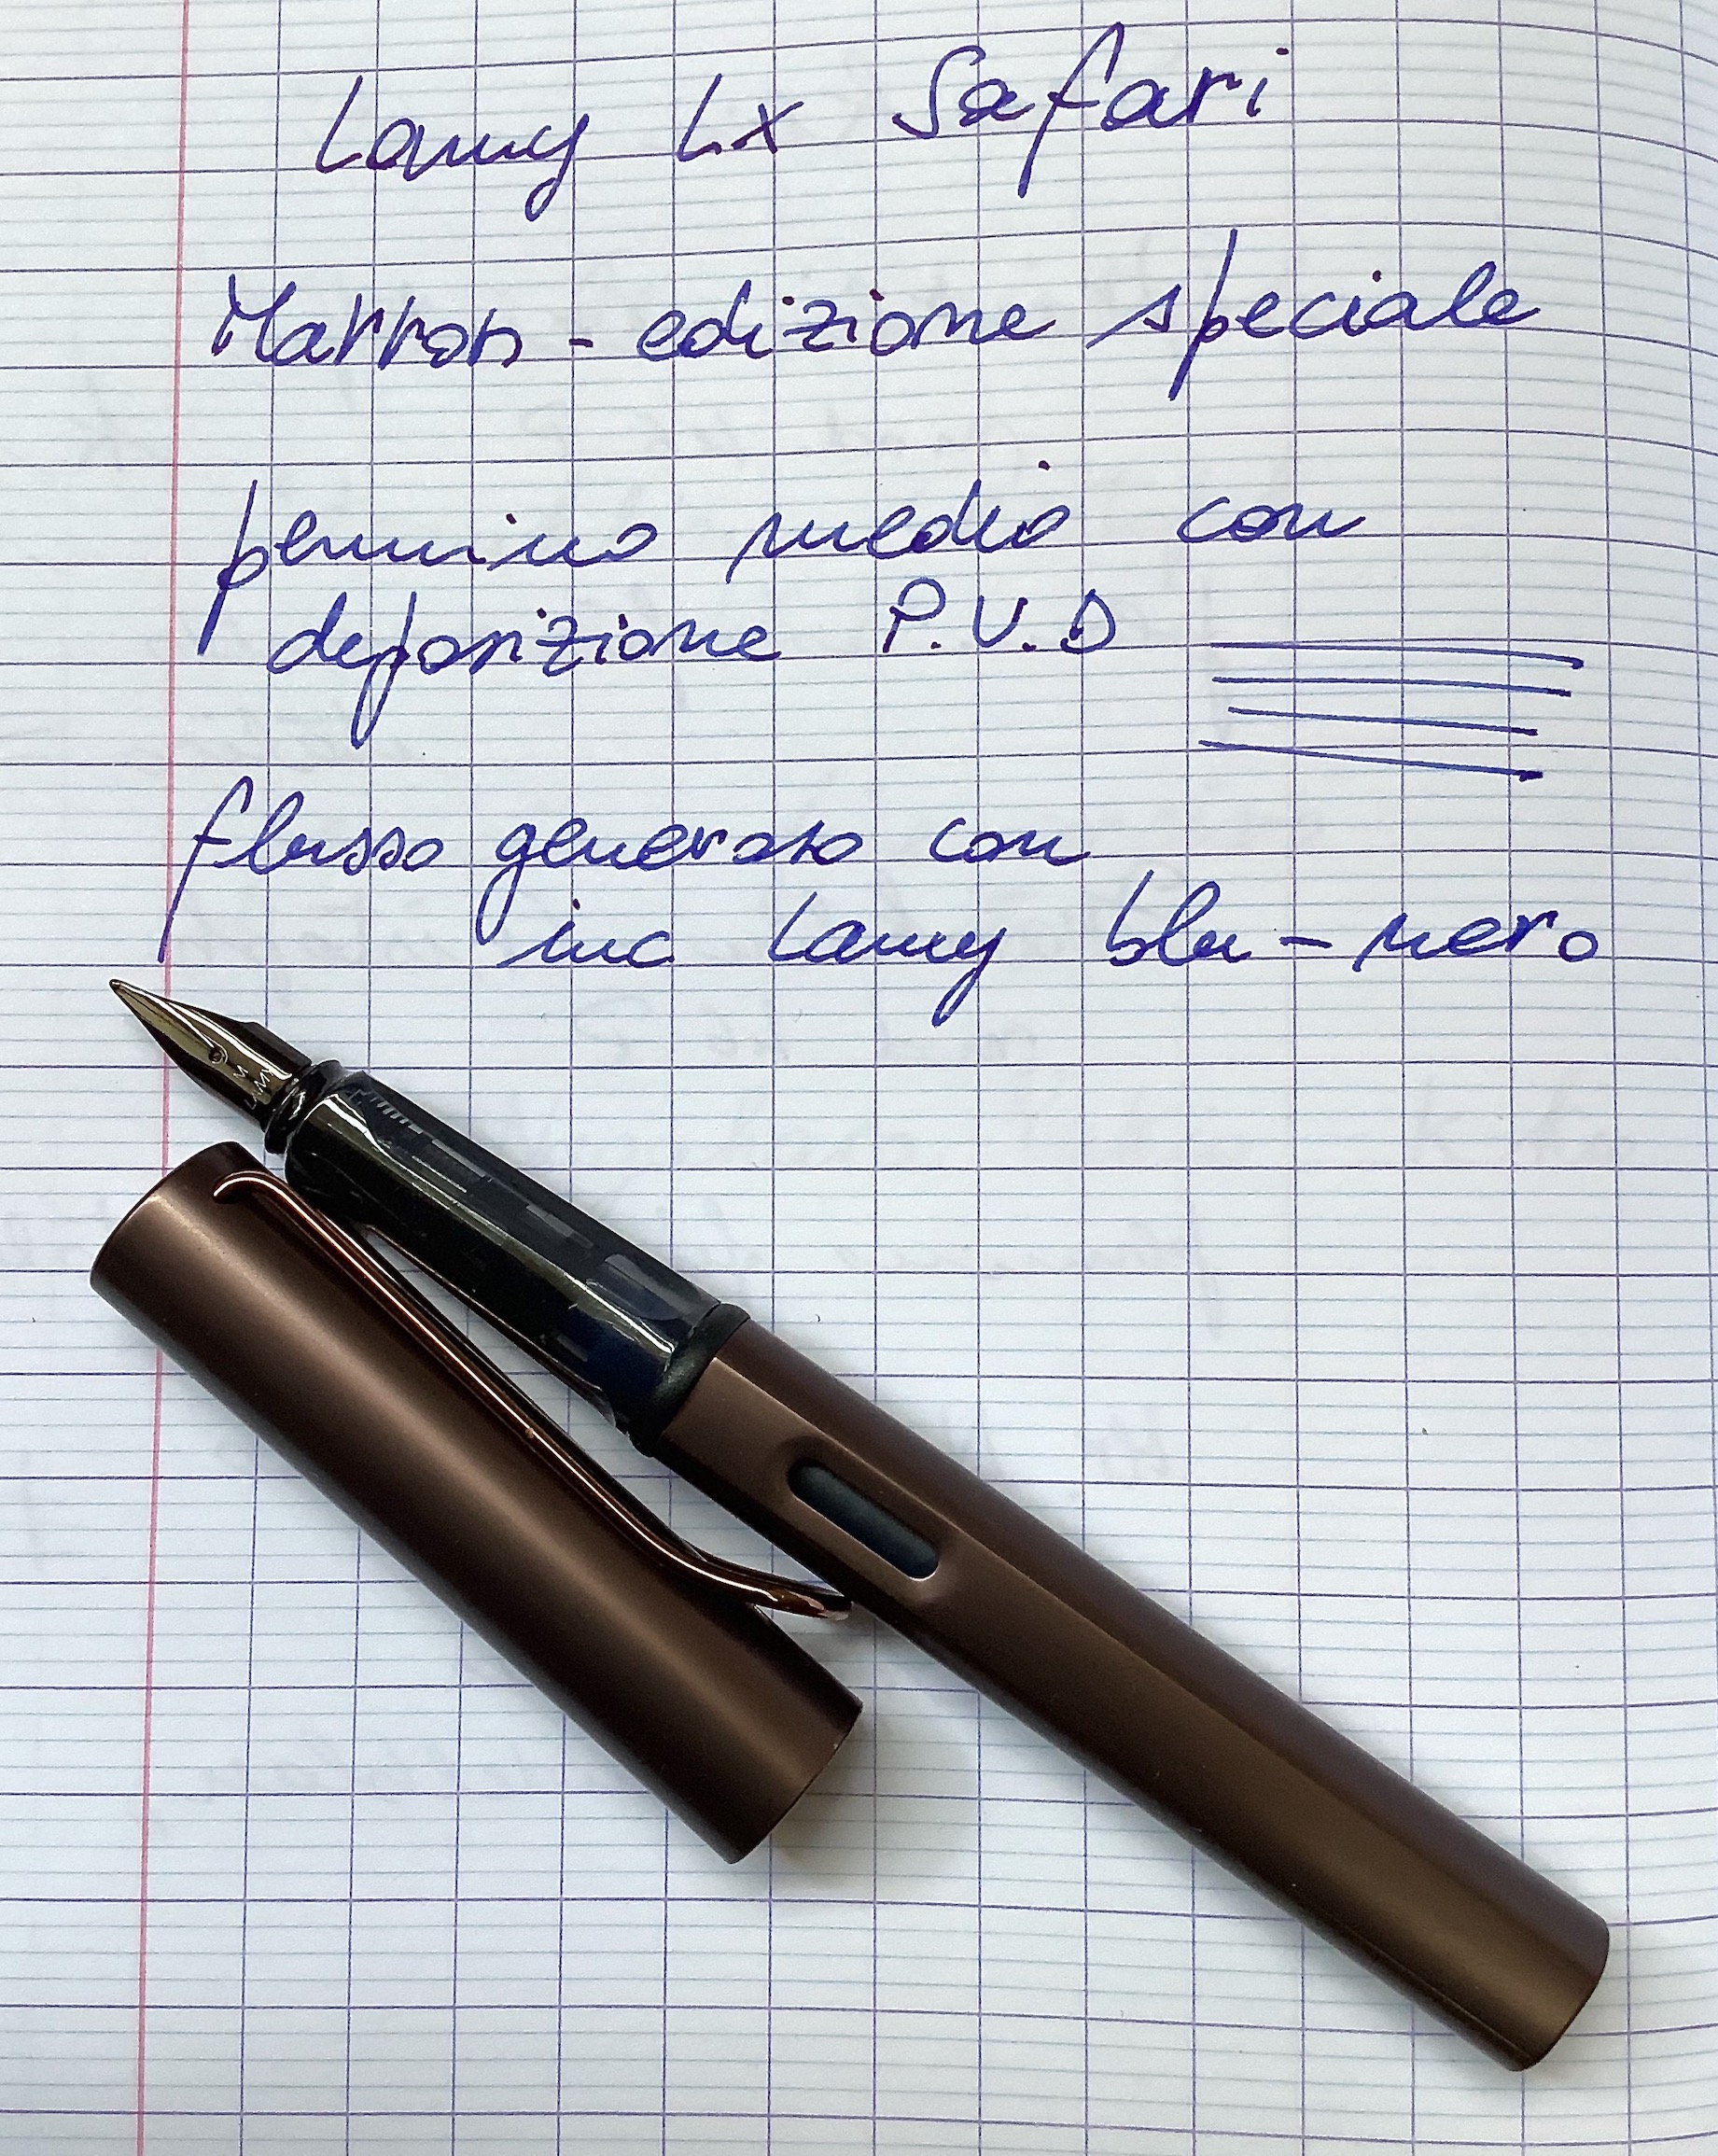 Lamy Lx Safari
Marron - edizione speciale
pennino medio con
deposizione P.V.D
flusso generoso con
inc Lamy blu - nero
LAMY